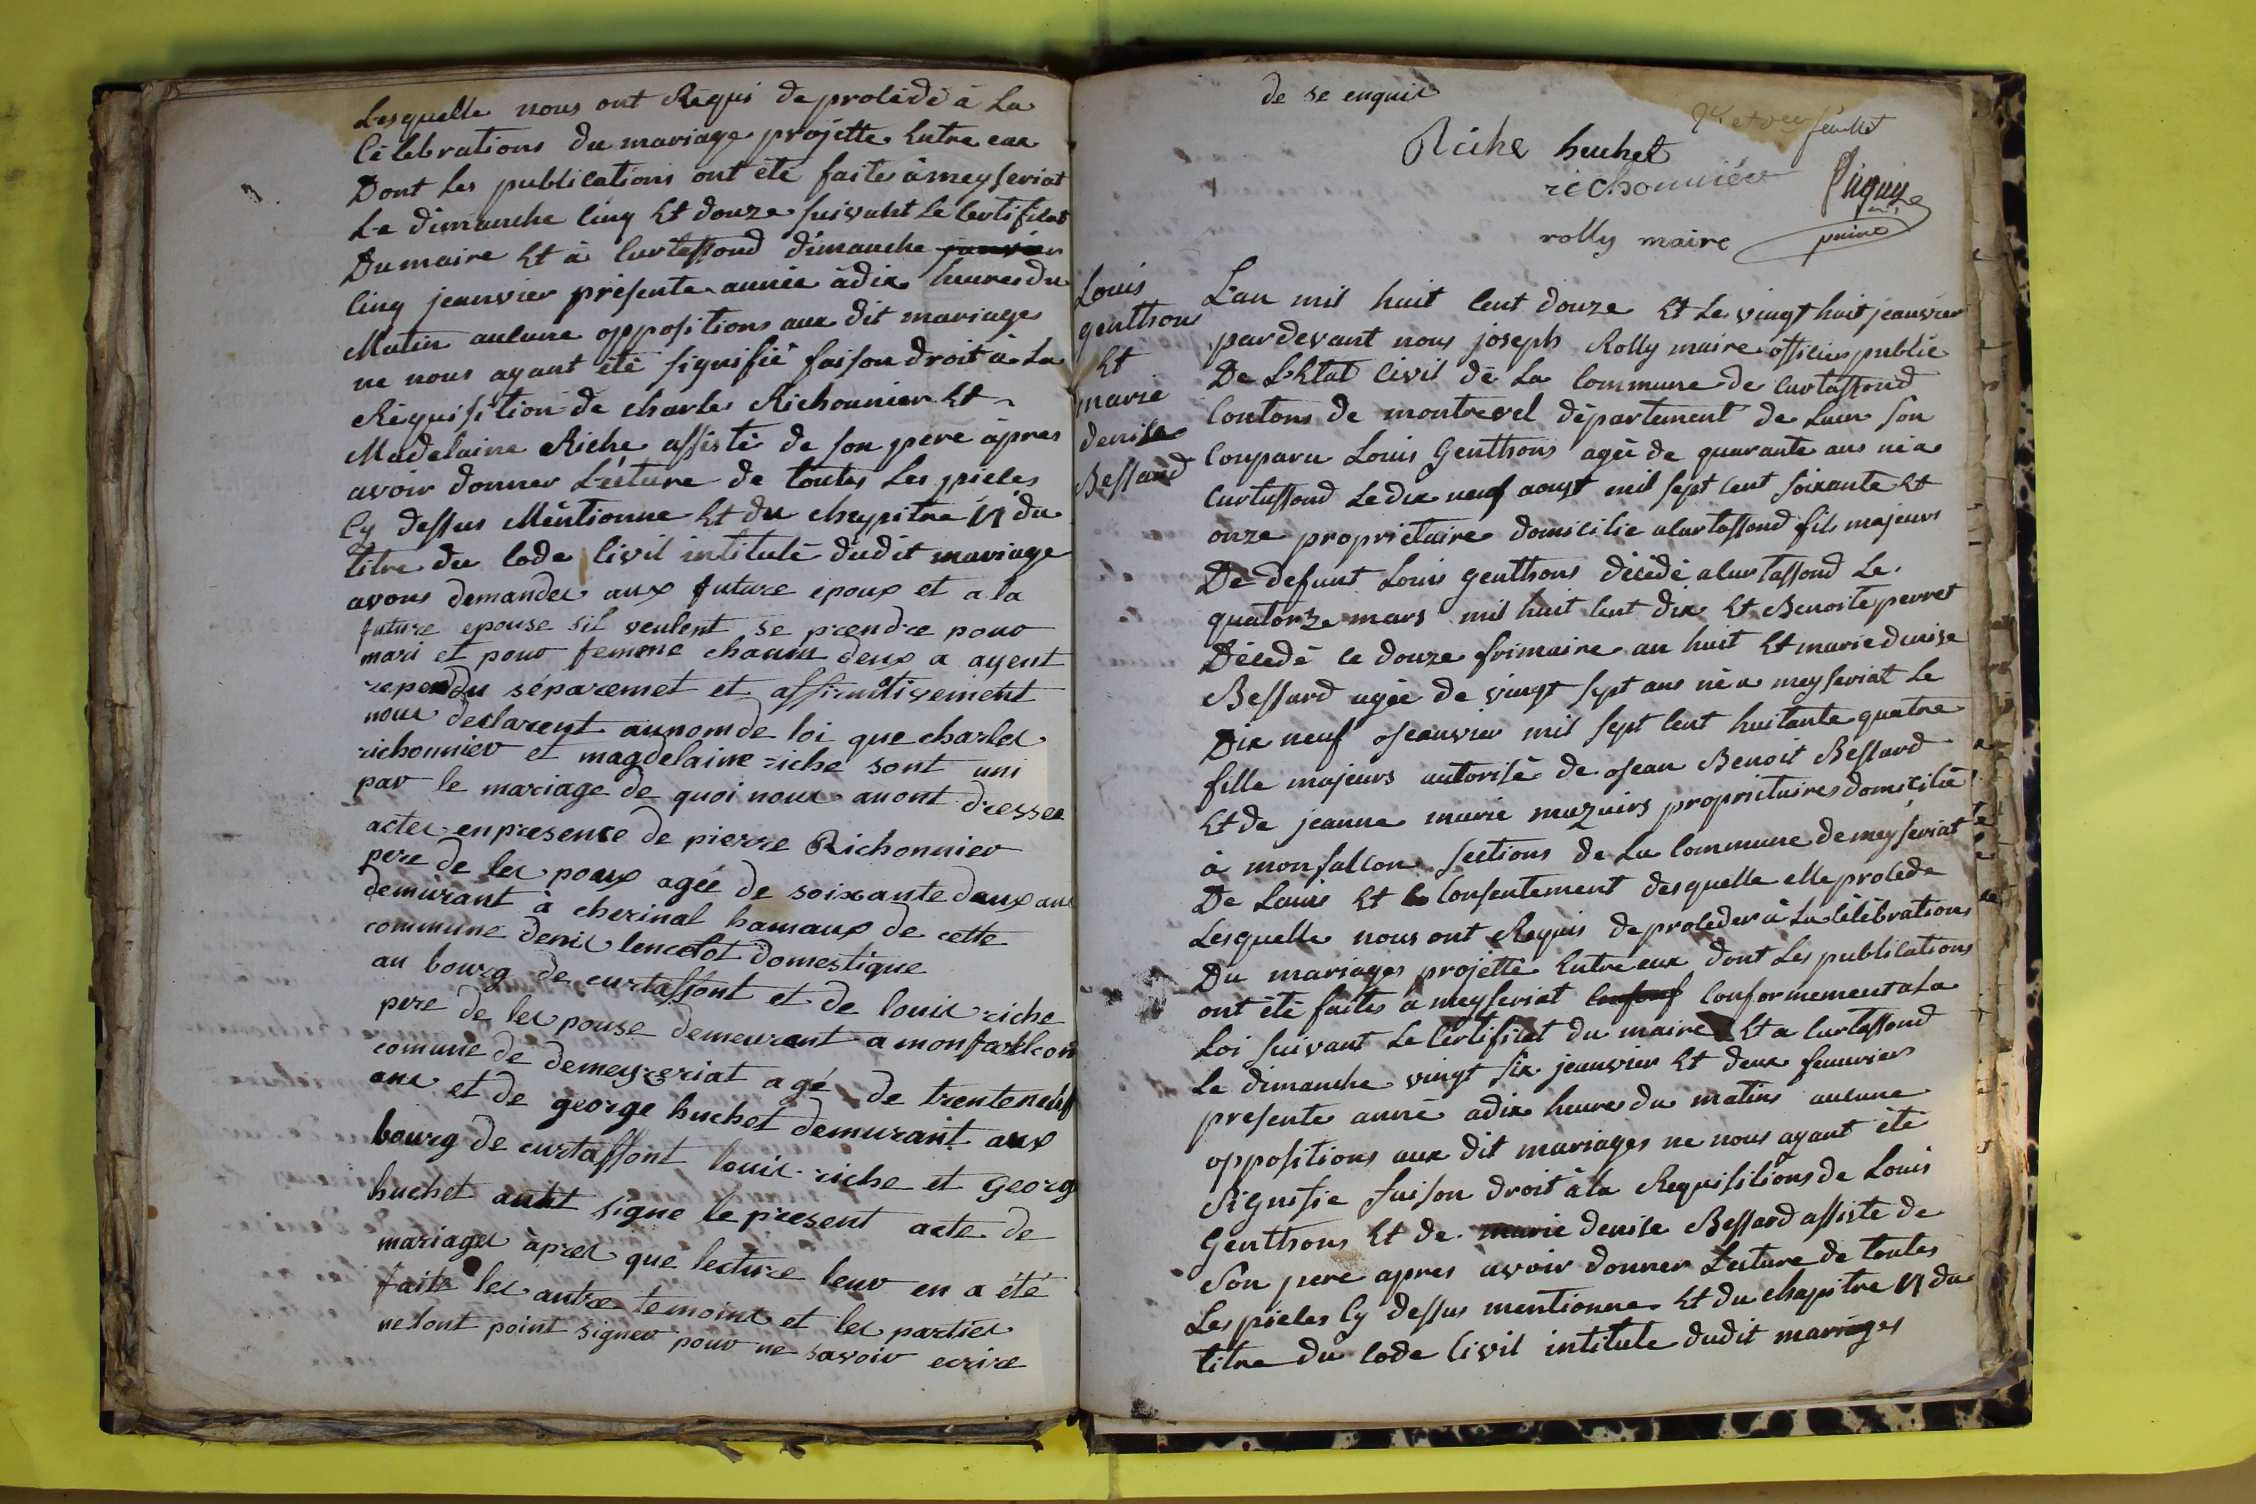 Lesquelle nous ont Requis de procédé à La
Célébrations du mariage projette Entre eux
Dont Les publications ont été faites à meyseriat
Le dimanche Cinq Et douze suivant Le Certificat
Du maire Et à Curtassond dimanche janvier
Cinq jeanvier présente année à dix heures du
Matin aucune oppositions aux dit mariages
ne nous ayant été signifié faison droit à La
Réquisition de charle Richonnier Et
Madelaine Riche assisté de son pere àpres
avoir donner Lécture de toutes Les pieces
Cy dessus Méntionne Et du chapitre VI du
titre du Code Civil intitulé dudit mariage
avons demandez aux future epoux et a la
future epouse sil veulent se prendre pour
mari et pour femme chacun deux a ayent
repondu séparemet et affirmativement
nous declarent au nom de loi que charles
richonnier et magdelaine riche sont uni
par le mariage de quoi nous avont dressee
actes en presence de pierre Richonnier
pere de les poux agée de soixante deux ans
demurant à cherinal hamaux de cette
commune denis lencelot domestique
au bourg de curtaffont et de louis riche
pere de les pouse demeurant a monfaklcon
comune de demeyzeriat agé de trente neuf
ans et de george huchet demurant aux
bourg de curtaffont louis riche et Georg
huchet autt signe le present acte de
mariages àpres que lecture leur en a été
faite les autre temoins et les parties
ne sont point signer pour ne savoir ecrire
de se enquis
feuillet
Riche huchet
richonnier
rolly maire
Louis
genthons
Et
marie
denise
Bessard
L'an mil huit Cent douze Et Le vingt huit jeanvier
pardevant nous joseph Rolly maire officier public
De L'Etat Civil de La Commune de Curtassond
Contons de montrevel département de Lain son
Conparu Louis Genthons agée de quarante ans né a
Curtassond Le dix neuf aoust mil sept Cent soixante Et
onze propriétaire domicilie a Curtassond fils majeurs
De defunt Louis genthons décédé a Curtassond Le
quatorze mars mil huit Cent dix Et Benoite perret
Décedé le douze frimaire an huit Et marie denise
Bessard agée de vingt sept ans né a meyseriat Le
Dix neuf jeanvier mil sept Cent huitante quatre
fille majeurs autorisé de jean Benoit Bessard
Et de jeanne marie mazuirs proprietaires domicilié
à monfalcon sections de La Commune de meyseriat
De Lavis Et Le Consentement desquelle elle procede
Lesquelle nous ont Requis de proceder à La Célébrations
Du mariages projetté Entre eux dont Les publications
ont été faites a meyseriat confouf Conformement a La
Loi suivant Le Certificat du maire Et a Curtassond
Le dimanche vingt six jeanvier Et deux feauvriers
presente anné a dix heures du matins aucune
oppositions aux dit mariages ne nous ayant été
Signifie faison droit à la Requisitions de Louis
Genthons Et de marie denise Bessard assiste de
Son pere apres avoir donner Lecture de toutes
Les pieces Cy dessus mentionne Et du chapitre VI du
titre du Code Civil intitule dudit mariages